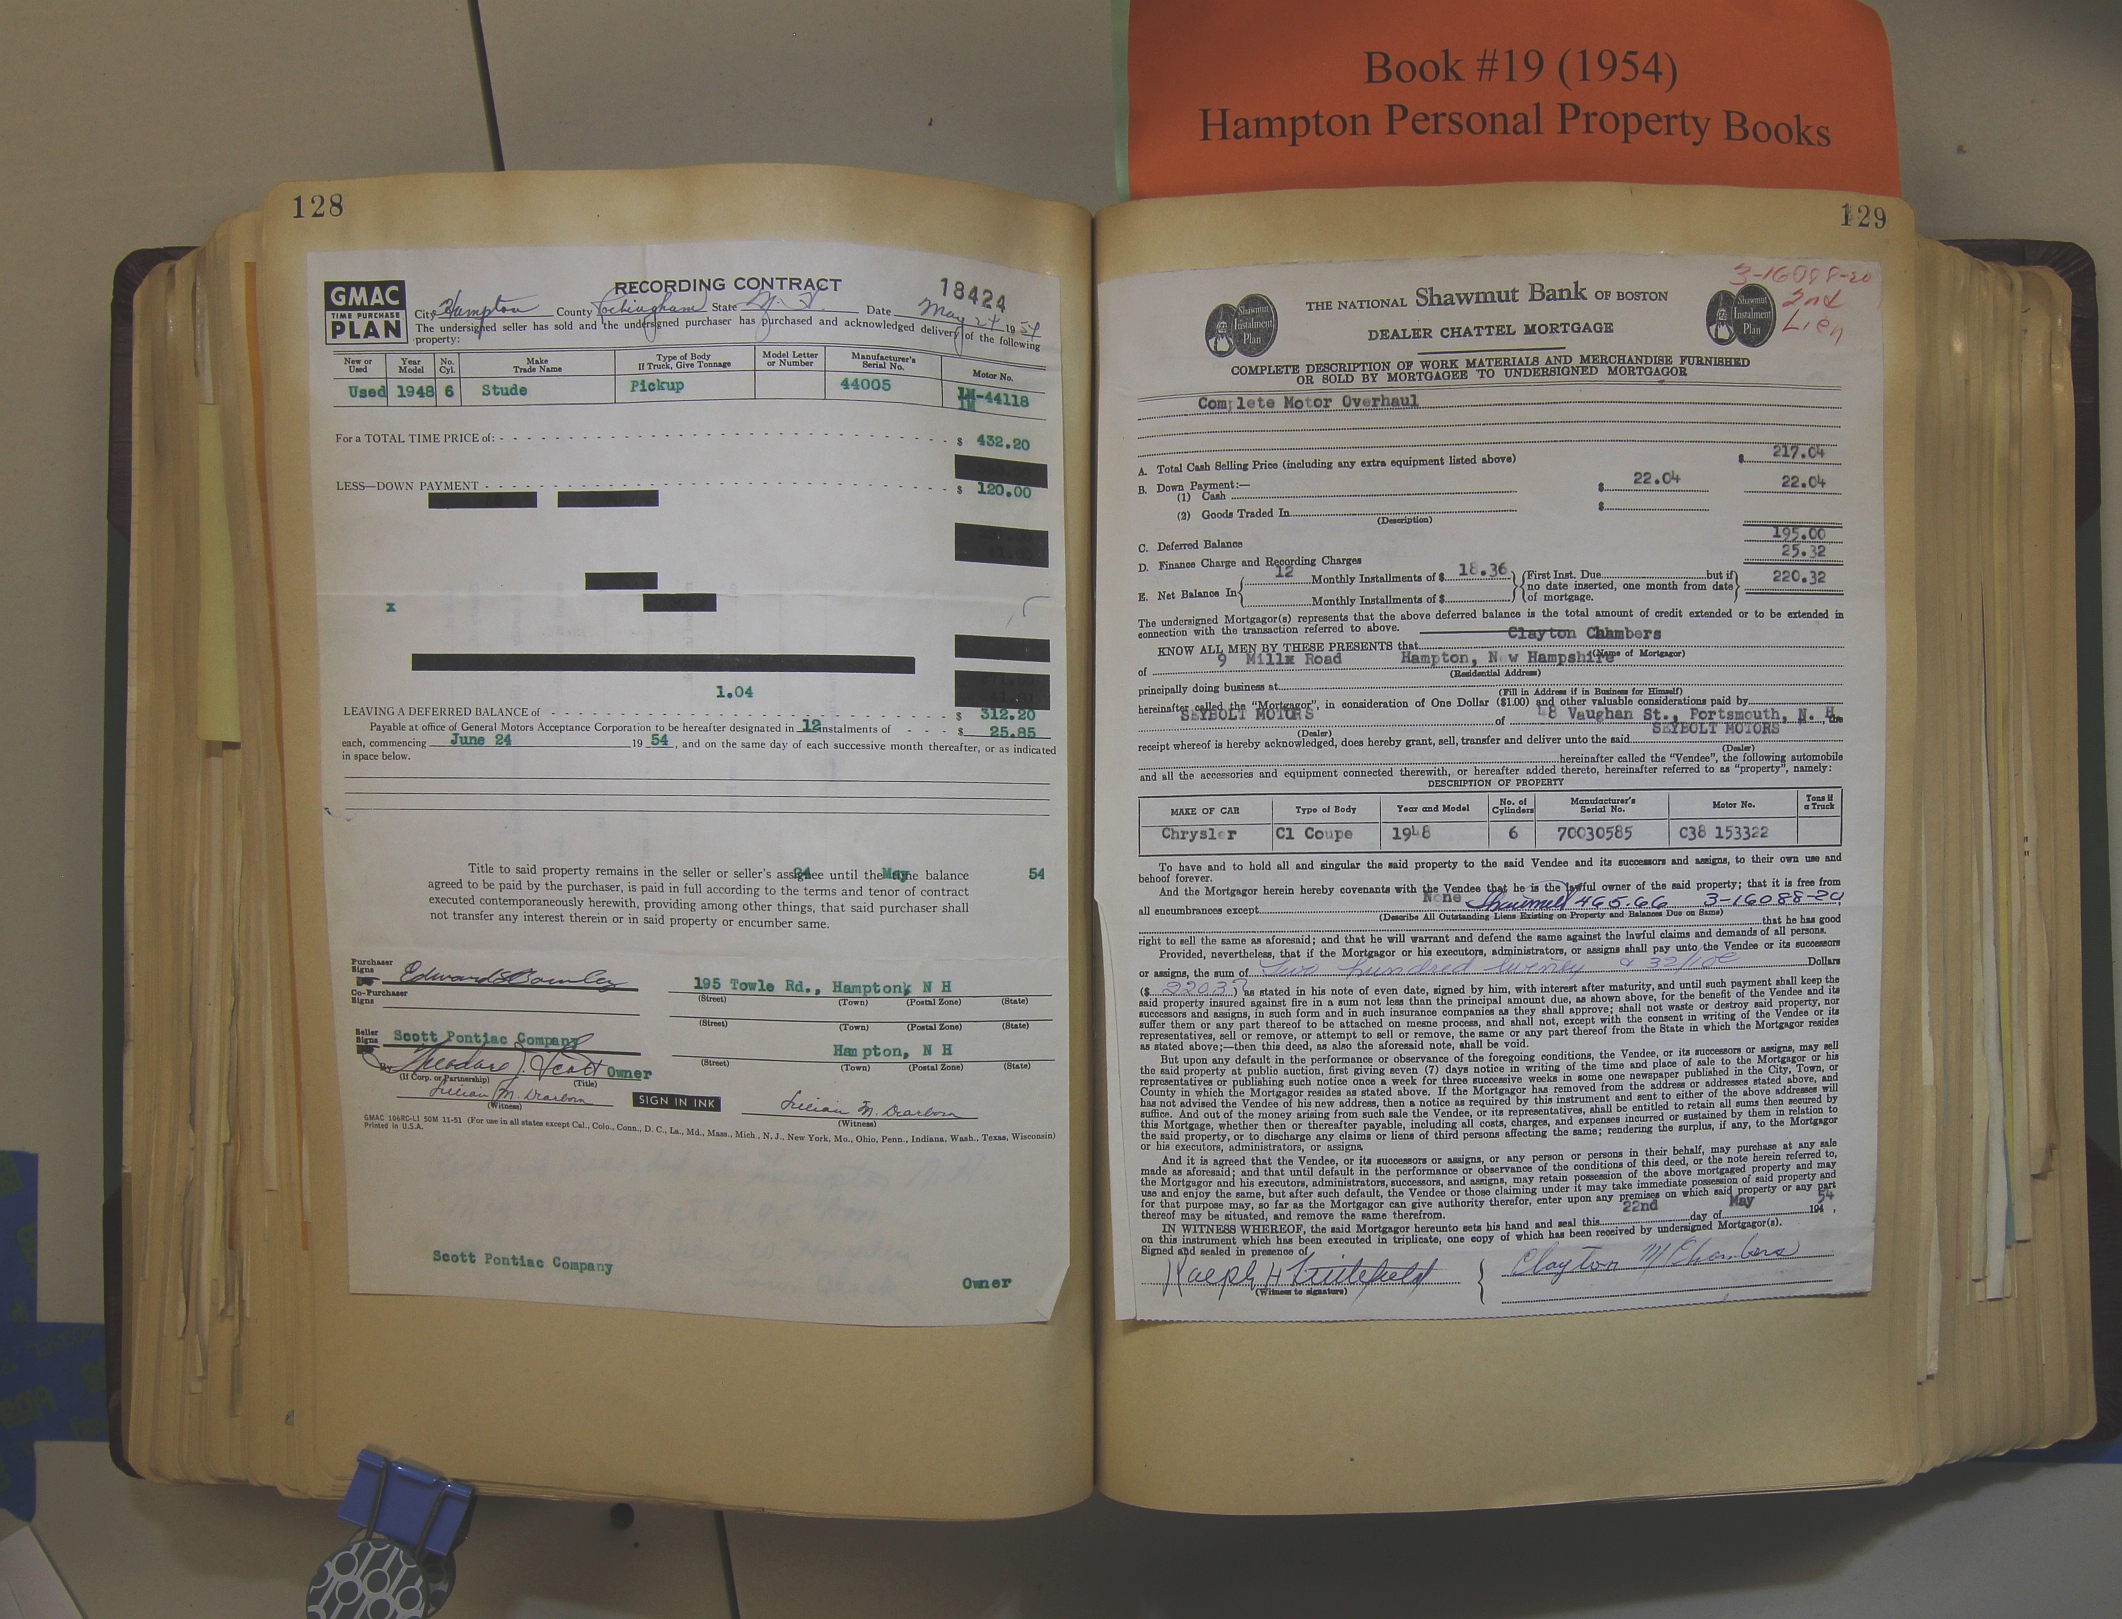 Book #19 (1954)
Hampton Personal Property Books
128
GMAC
TIME PURCHASE
PLAN
RECORDING CONTRACT
18424
City Hampton County Rockingham State N. H. Date May 24 1954
The undersigned seller has sold and the undersigned purchaser has purchased and acknowledged delivery of the following
property:
New or Used Year Model No. Cyl. Make Trade Name Type of Body If Truck, Give Tonnage Model Letter or Number Manufacturer's Serial No. Motor No.
Used 1948 6 Stude Pickup 44005 1M-44118
For a TOTAL TIME PRICE of: $ 432.20
LESS—DOWN PAYMENT $ 120.00
x
1.04
LEAVING A DEFERRED BALANCE of $ 312.20
Payable at office of General Motors Acceptance Corporation to be hereafter designated in 12 instalments of $ 25.85
each, commencing June 24 1954, and on the same day of each successive month thereafter, or as indicated
in space below.
Title to said property remains in the seller or seller's assignee until the time balance
24 May 54
agreed to be paid by the purchaser, is paid in full according to the terms and tenor of contract
executed contemporaneously herewith, providing among other things, that said purchaser shall
not transfer any interest therein or in said property or encumber same.
Purchaser Signs Edward 195 Towle Rd., Hampton, N H
(Street) (Town) (Postal Zone) (State)
Co-Purchaser Signs
(Street) (Town) (Postal Zone) (State)
Seller Signs Scott Pontiac Company Hampton, N H
(Street) (Town) (Postal Zone) (State)
By Theodore J. Scott Owner
(If Corp. or Partnership) (Title)
Lillian M. Dearborn SIGN IN INK Lillian M. Dearborn
(Witness) (Witness)
GMAC 106RC-L1 50M 11-51 (For use in all states except Cal., Colo., Conn., D. C., La., Md., Mass., Mich., N. J., New York, Mo., Ohio, Penn., Indiana, Wash., Texas, Wisconsin)
Printed in U.S.A.
Scott Pontiac Company
Owner
129
3-16088-20
2nd
Lien
Shawmut Instalment Plan
THE NATIONAL Shawmut Bank OF BOSTON
Shawmut Instalment Plan
DEALER CHATTEL MORTGAGE
COMPLETE DESCRIPTION OF WORK MATERIALS AND MERCHANDISE FURNISHED
OR SOLD BY MORTGAGEE TO UNDERSIGNED MORTGAGOR
Complete Motor Overhaul
A. Total Cash Selling Price (including any extra equipment listed above) $ 217.04
B. Down Payment:—
(1) Cash $ 22.04 22.04
(2) Goods Traded In $
(Description)
C. Deferred Balance 195.00
D. Finance Charge and Recording Charges 25.32
E. Net Balance In 12 Monthly Installments of $ 18.36 First Inst. Due but if 220.32
Monthly Installments of $ no date inserted, one month from date of mortgage.
The undersigned Mortgagor(s) represents that the above deferred balance is the total amount of credit extended or to be extended in
connection with the transaction referred to above.
KNOW ALL MEN BY THESE PRESENTS that Clayton Chambers
(Name of Mortgagor)
of 9 Millx Road Hampton, New Hampshire
(Residential Address)
principally doing business at
(Fill in Address if in Business for Himself)
hereinafter called the "Mortgagor", in consideration of One Dollar ($1.00) and other valuable considerations paid by
SEYBOLT MOTORS of 48 Vaughan St., Portsmouth, N. H. the
(Dealer)
receipt whereof is hereby acknowledged, does hereby grant, sell, transfer and deliver unto the said SEYBOLT MOTORS
(Dealer)
hereinafter called the "Vendee", the following automobile
and all the accessories and equipment connected therewith, or hereafter added thereto, hereinafter referred to as "property", namely:
DESCRIPTION OF PROPERTY
MAKE OF CAR Type of Body Year and Model No. of Cylinders Manufacturer's Serial No. Motor No. Tons if a Truck
Chrysler Cl Coupe 1948 6 70030585 C38 153322
To have and to hold all and singular the said property to the said Vendee and its successors and assigns, to their own use and
behoof forever.
And the Mortgagor herein hereby covenants with the Vendee that he is the lawful owner of the said property; that it is free from
all encumbrances except None Shawmut 465.66 3-16088-20
(Describe All Outstanding Liens Existing on Property and Balances Due on Same)
that he has good
right to sell the same as aforesaid; and that he will warrant and defend the same against the lawful claims and demands of all persons.
Provided, nevertheless, that if the Mortgagor or his executors, administrators, or assigns shall pay unto the Vendee or its successors
or assigns, the sum of Two hundred twenty & 32/100 Dollars
($ 220.32) as stated in his note of even date, signed by him, with interest after maturity, and until such payment shall keep the
said property insured against fire in a sum not less than the principal amount due, as shown above, for the benefit of the Vendee and its
successors and assigns, in such form and in such insurance companies as they shall approve; shall not waste or destroy said property, nor
suffer them or any part thereof to be attached on mesne process, and shall not, except with the consent in writing of the Vendee or its
representatives, sell or remove, or attempt to sell or remove, the same or any part thereof from the State in which the Mortgagor resides
as stated above;—then this deed, as also the aforesaid note, shall be void.
But upon any default in the performance or observance of the foregoing conditions, the Vendee, or its successors or assigns, may sell
the said property at public auction, first giving seven (7) days notice in writing of the time and place of sale to the Mortgagor or his
representatives or publishing such notice once a week for three successive weeks in some one newspaper published in the City, Town, or
County in which the Mortgagor resides as stated above. If the Mortgagor has removed from the address or addresses stated above, and
has not advised the Vendee of his new address, then a notice as required by this instrument and sent to either of the above addresses will
suffice. And out of the money arising from such sale the Vendee, or its representatives, shall be entitled to retain all sums then secured by
this Mortgage, whether then or thereafter payable, including all costs, charges, and expenses incurred or sustained by them in relation to
the said property, or to discharge any claims or liens of third persons affecting the same; rendering the surplus, if any, to the Mortgagor
or his executors, administrators, or assigns.
And it is agreed that the Vendee, or its successors or assigns, or any person or persons in their behalf, may purchase at any sale
made as aforesaid; and that until default in the performance or observance of the conditions of this deed, or the note herein referred to,
the Mortgagor and his executors, administrators, successors, and assigns, may retain possession of the above mortgaged property and may
use and enjoy the same, but after such default, the Vendee or those claiming under it may take immediate possession of said property and
for that purpose may, so far as the Mortgagor can give authority therefor, enter upon any premises on which said property or any part
thereof may be situated, and remove the same therefrom.
IN WITNESS WHEREOF, the said Mortgagor hereunto sets his hand and seal this 22nd day of May 194 54,
on this instrument which has been executed in triplicate, one copy of which has been received by undersigned Mortgagor(s).
Signed and sealed in presence of
Ralph H Littlefield Clayton M Chambers
(Witness to signature)